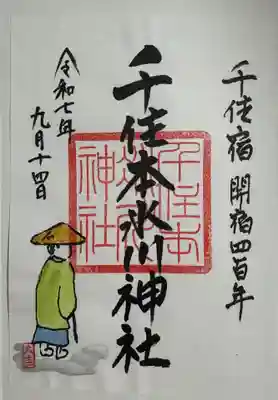 千住宿 開宿四百年
千住本氷川神社
令和七年
九月十四日
千住本
氷川
神社